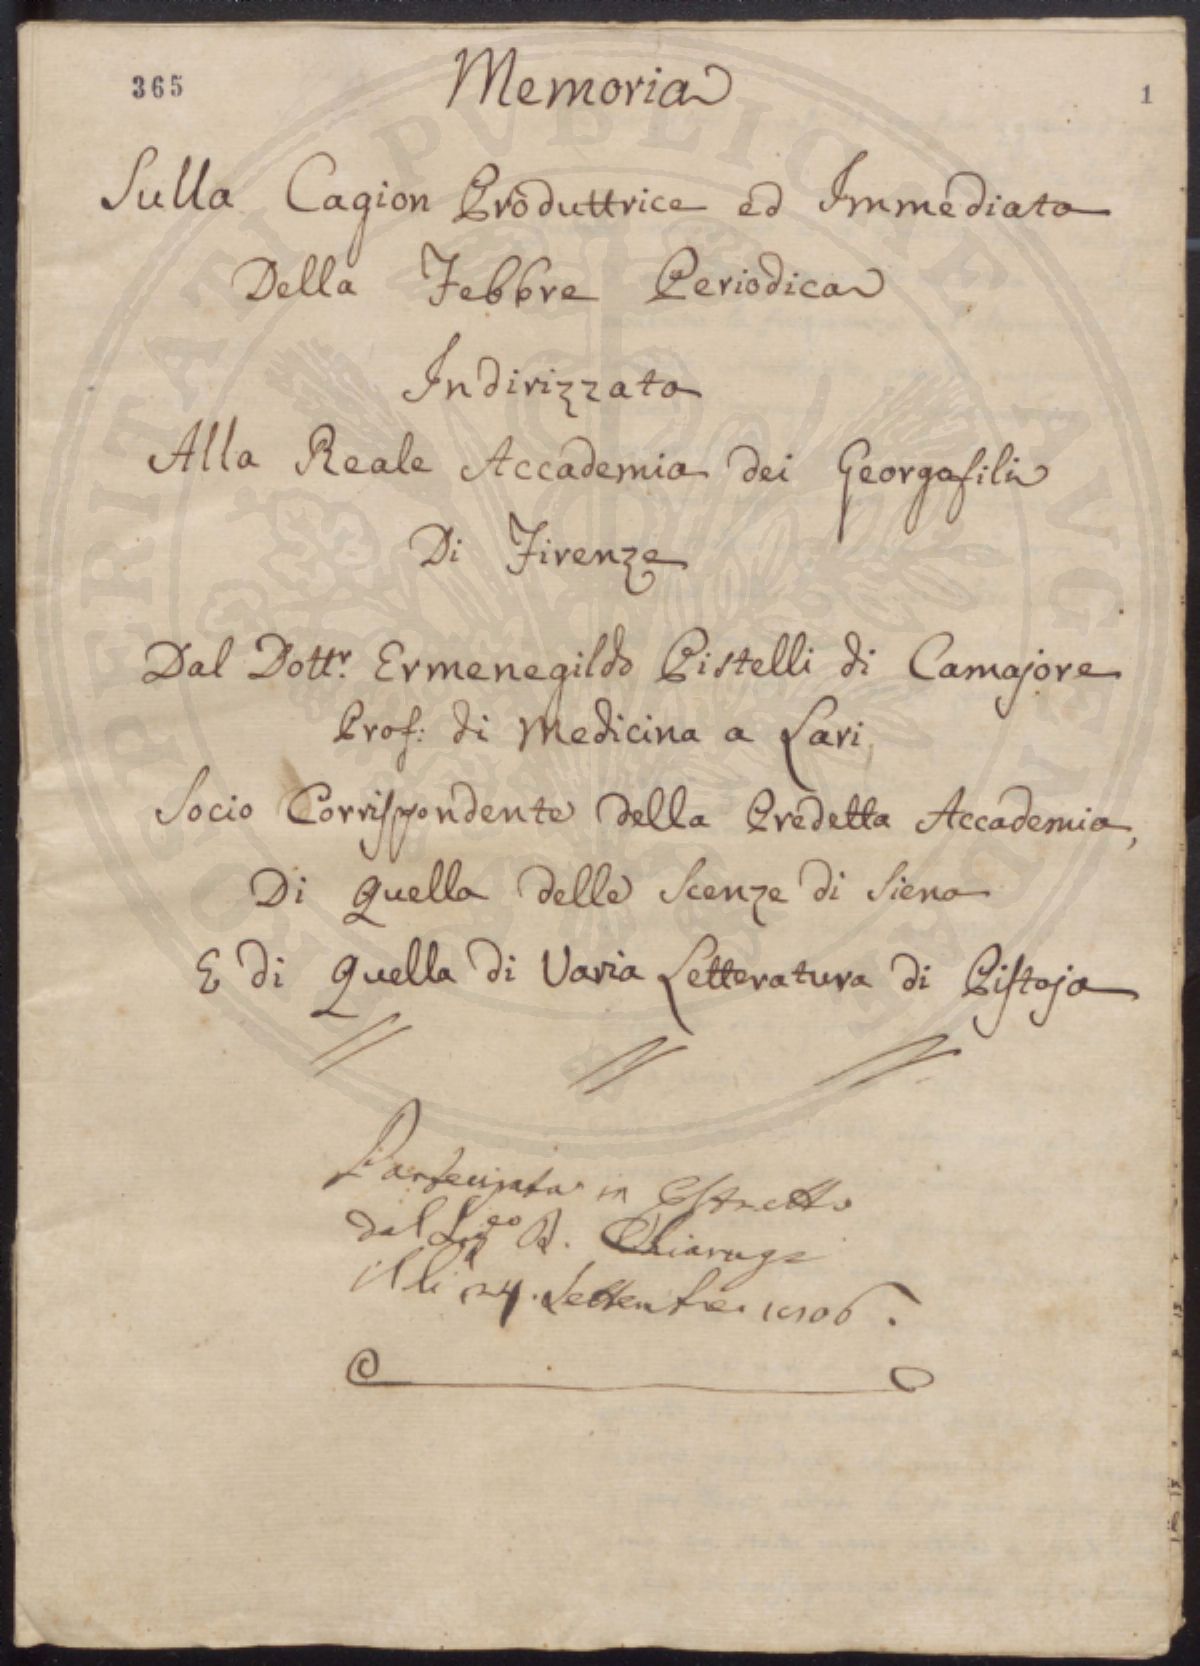 365
Memoria
1
Sulla Cagion Produttrice ed Immediata
Della Febbre Periodica
Indirizzata
Alla Reale Accademia dei Georgofili
Di Firenze
Dal Dottr. Ermenegildo Pistelli di Camajore
Prof: di Medicina a Lari
Socio Corrispondente della Predetta Accademia,
Di Quella delle Scenze di Siena
E di Quella di Varia Letteratura di Pistoja
Partecipata in Estratto
dal Sigeo D. Chiarugi
il li 24. Settembre 1806.
PROSPERITATI PVBLICAE AVGENDAE